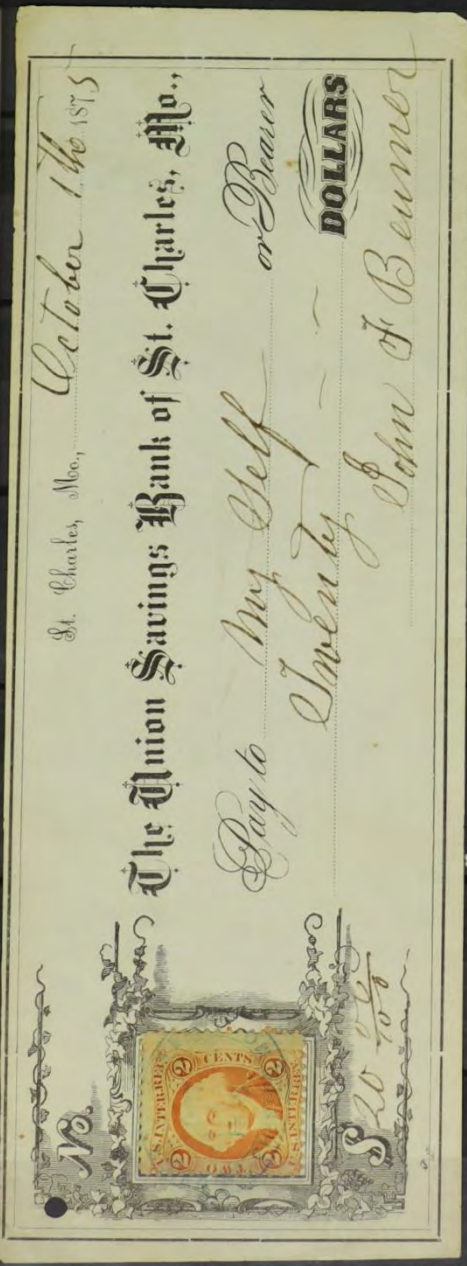 No.
St. Charles, Mo., October 1th 1875
The Union Savings Bank of St. Charles, Mo.,
Pay to My Self or Bearer
Twenty DOLLARS
$ 20 00/100 John F Beumer
U.S. INTER. REV.
2 CENTS 2
2 TWO 2
U.S. INTER. REV.